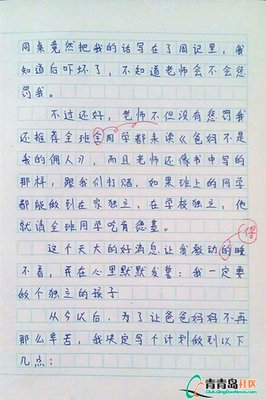 周来竟然把我的话写在了周记里，我
知道后吓坏了，不知道老师会不会惩
罚我。
不过还好，老师不但没有惩罚我
还推荐全班全同学都来读《爸妈不是
我的佣人》，而且老师还像书中写的
那样，跟我们打赌，如果班上的同学
都能做到在家独立、在学校独立，他
就请全班同学吃肯德基。
这个天大的好消息让我激动的睡
得
不着，再在心里默默发誓：我一定要
做个独立的孩子
从今以后、为了让爸爸妈妈不再
那么辛苦，我决定写个计划做到以下
几点：
青青岛社区
Club.QingDaoNews.Com